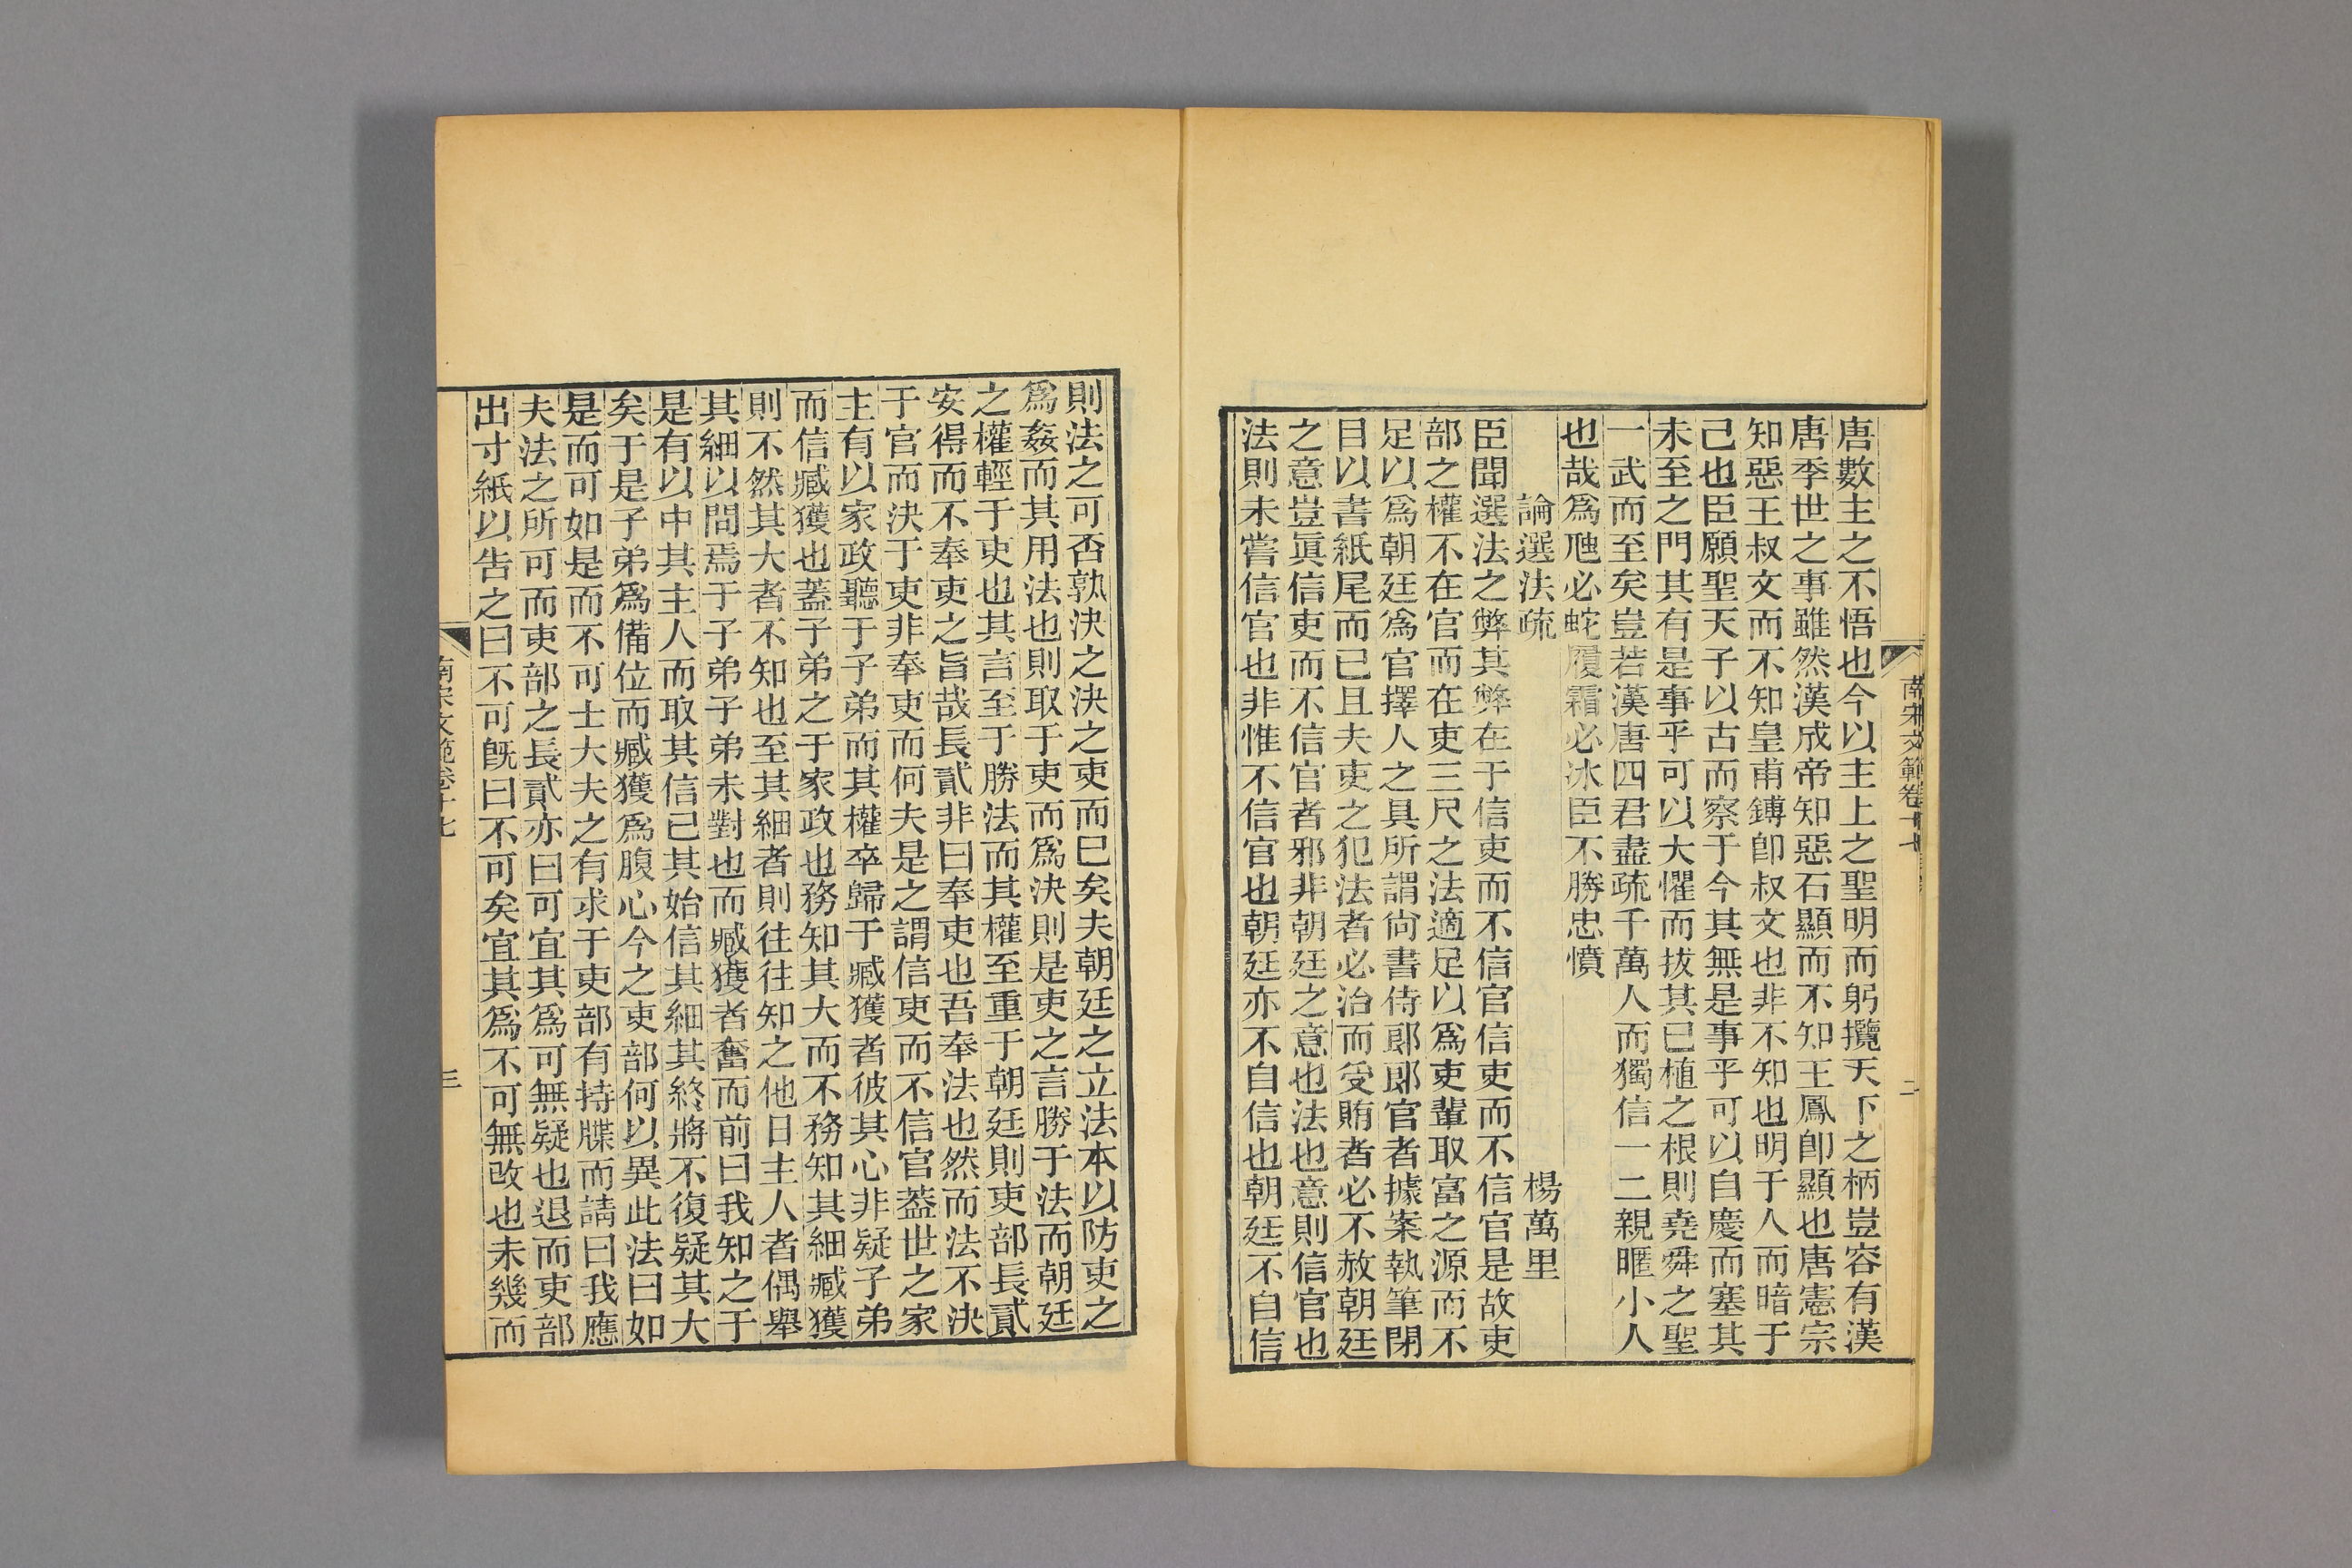 南宋文範卷十七
二
唐數主之不悟也今以主上之聖明而躬攬天下之柄豈容有漢
唐季世之事雖然漢成帝知惡石顯而不知王鳳卽顯也唐憲宗
知惡王叔文而不知皇甫鎛卽叔文也非不知也明于人而暗于
己也臣願聖天子以古而察于今其無是事乎可以自慶而塞其
未至之門其有是事乎可以大懼而拔其已植之根則堯舜之聖
一武而至矣豈若漢唐四君盡疏千萬人而獨信一二親暱小人
也哉爲虺必蛇履霜必冰臣不勝忠憤
論選法疏 楊萬里
臣聞選法之弊其弊在于信吏而不信官信吏而不信官是故吏
部之權不在官而在吏三尺之法適足以爲吏輩取富之源而不
足以爲朝廷爲官擇人之具所謂尙書侍郞郞官者據案執筆閉
目以書紙尾而已且夫吏之犯法者必治而受賄者必不赦朝廷
之意豈眞信吏而不信官者邪非朝廷之意也法也意則信官也
法則未嘗信官也非惟不信官也朝廷亦不自信也朝廷不自信
則法之可否孰決之決之吏而已矣夫朝廷之立法本以防吏之
爲姦而其用法也則取于吏而爲決則是吏之言勝于法而朝廷
之權輕于吏也其言至于勝法而其權至重于朝廷則吏部長貳
安得而不奉吏之旨哉長貳非曰奉吏也吾奉法也然而法不決
于官而決于吏非奉吏而何夫是之謂信吏而不信官蓋世之家
主有以家政聽于子弟而其權卒歸于臧獲者彼其心非疑子弟
而信臧獲也蓋子弟之于家政也務知其大而不務知其細臧獲
則不然其大者不知也至其細者則往往知之他日主人者偶舉
其細以問焉于子弟子弟未對也而臧獲者奮而前曰我知之于
是有以中其主人而取其信已其始信其細其終將不復疑其大
矣于是子弟爲備位而臧獲爲腹心今之吏部何以異此法曰如
是而可如是而不可士大夫之有求于吏部有持牒而請曰我應
夫法之所可而吏部之長貳亦曰可宜其爲可無疑也退而吏部
出寸紙以告之曰不可旣曰不可矣宜其爲不可無改也未幾而
南宋文範卷十七
三